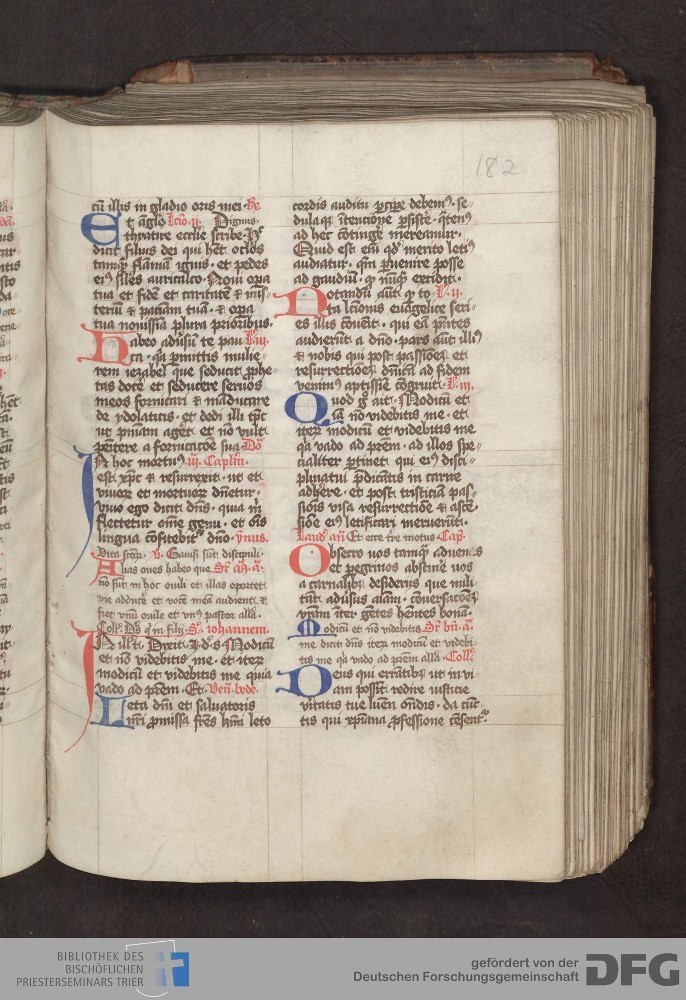 182
cū illis in gladio oris mei. Rx
Et āgło lcīo. ij. Dignis.
thyatire ecclīe scribe. Hͦ
dicit filius dei qui hēt oclos
tamqͣ flāmā ignis. et pedes
eiꝰ siłes auricalco. Noui opa
tua et fidē et caritatē ⁊ mis
teriū ⁊ paciam tuā. ⁊ opa
tua nouissīa plura prioribus.
Habeo aduſum te pau L. iij.
ca. qͣ pmittis mulie-
rem iezabel que seducit pphe-
tas docē et seducere seruos
meos fornicari ⁊ māducare
de ydolaticis. et dedi illi tp̄c
ut pniam agēt. et nō vult
penitere a fornicacōe sua Dō
In hoc mortuꝰ. iij. Caplm.
est xp̄c ⁊ resurrexit. ut et
viuor et mortuor dn̄etur.
viuo ego dicit dn̄s. qua m
flectetur om̄e genu. et om̄s
lingua cōfitebitͬ dn̄o. ymus.
Vita scōr. v. Gauiſi sūt discipuli.
Alias oues habeo que Sr. añ. a.
nō sūt in hoc ouili et illas oportet
me adducē et vocē meā audient ⁊
fiet vnū ouile et vnꝰ pastor alla.
Coll. Ds qͥ in filij Sͨ. iohannem.
In illo t. Dixit. I. d. s. Modicū
et nō videbitis me. et iterͫ
modicū et videbitis me quia
vado ad prem. Et. Ven. bede.
Leta dn̄i et saluatoris
nr̄i pmissa frēs kmi leto
cordis auditu pcipe debemꝰ. se-
dulaqꝫ ītencione psiste. qͣtenꝰ
ad hec cōtinge mereamur.
Quid est em̄ qd merito letiꝰ
audiatur. qm puenire posse
ad gaudiū. qͥ nūqͣ excidit.
Notandū aut qͥ to L. ij.
ta lcionis euāgelice seri-
es illis cōuēit. qui eā pn̄tes
audierūt a dn̄o. pars aut̄ illiꝰ
⁊ nobis qui post passionē et
resurrectionē dn̄icā ad fidem
venimꝰ aptissime cōgruit. L. iij.
Quod gͦ ait. Modicū et
iā nō videbitis me. et
iterͫ modicū et videbitis me
qͣ vado ad prem. ad illos spe-
cialiter ptinet. qui eiꝰ disci-
plinatui pdicātis in carne
adhēre. et post tristiciā pas-
sionis visa resurrectiōe ⁊ ascē-
siōe eiꝰ letificari meruerūt.
Laud. an̄ Et ecce tre motus. Cap.
Obsecro vos tamqͣ aduenas
et pegrinos abstinē vos
a carnalibꝫ desiderijs que mili-
tāt adūsus aīam. cōuersacionē
vr̄am iter gētes hn̄tes bonā.
Modicū et nō videbitis Sr. bn̄. a.
me dicit dn̄s iterͫ modicū et videbi-
tis me qͣ vado ad prem alla. Coll.
Deus qui errātibꝫ ut in vi-
am possīt redire iusticie
vitatis tue lumē ondis. da cūc-
tis qui xp̄iana pfessione cēsentͬ.
BIBLIOTHEK DES
BISCHÖFLICHEN
PRIESTERSEMINARS TRIER
gefördert von der
Deutschen Forschungsgemeinschaft
DFG